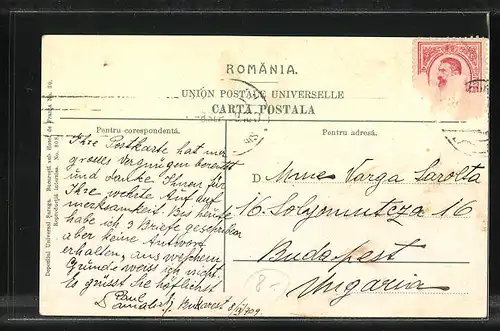 ROMÂNIA.
UNION POSTALE UNIVERSELLE
CARTA POSTALA
Pentru corespondentă.
Pentru adresă.
Ihre Postkarte hat mir
grosses Vergnügen bereitet
und danke Ihnen für
Ihre wehrte Auf auf
merksamkeit. Bes heute
habe ich 3 Briefe geschrieben
aber keine Antwort
erhalten, aus welchem
Grunde weiss ich nicht.
Es grüsst Sie höflichst
Paul
Bukarest 8/ 909.
D Mme Varga Sarolta
16. 16
Budapest
Ungaria
8-
Depozitul Universal Şaraga, Bucureşti sub Hotel de France No. 30.